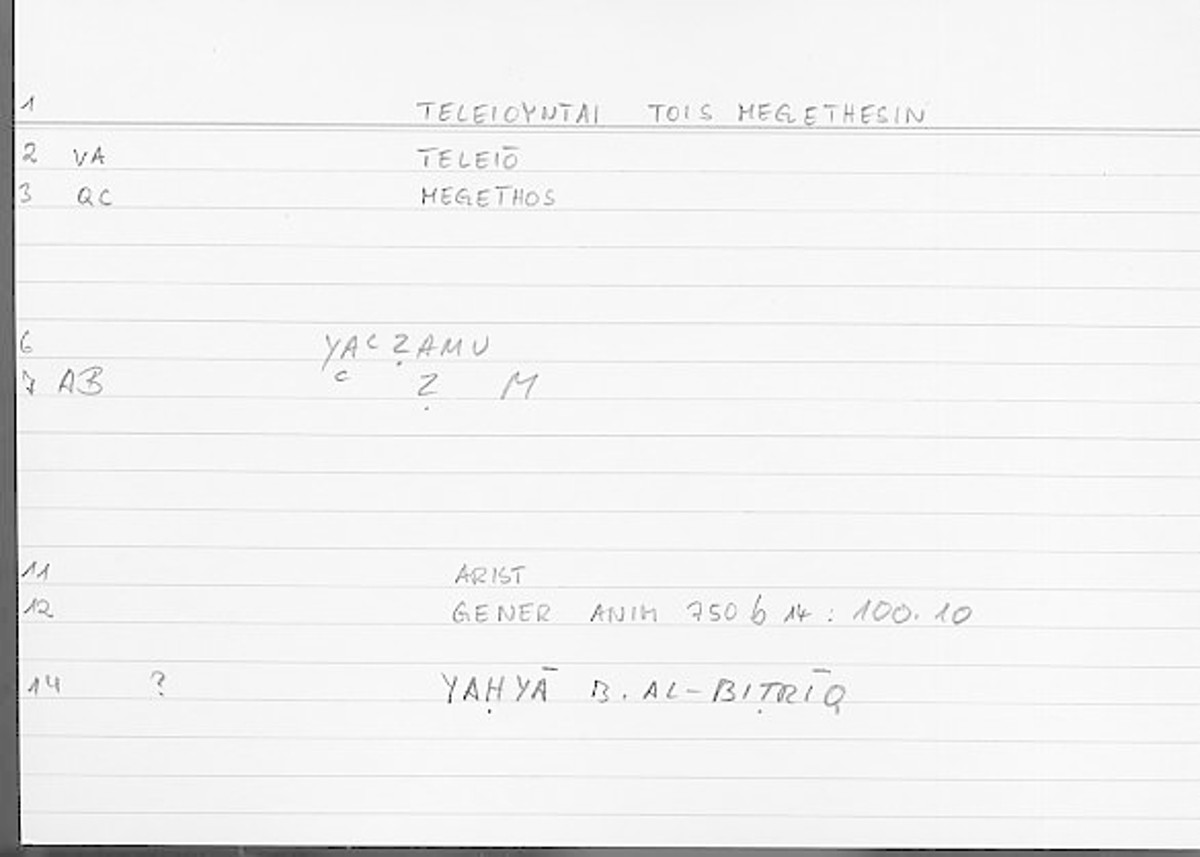 1 TELEIOYNTAI TOIS MEGETHESIN
2 VA TELEIŌ
3 QC MEGETHOS
6 YAᶜẒAMU
7 AB ᶜ Ẓ M
11 ARIST
12 GENER ANIM 750 b 14 : 100.10
14 ? YAḤYĀ B. AL-BIṬRĪQ